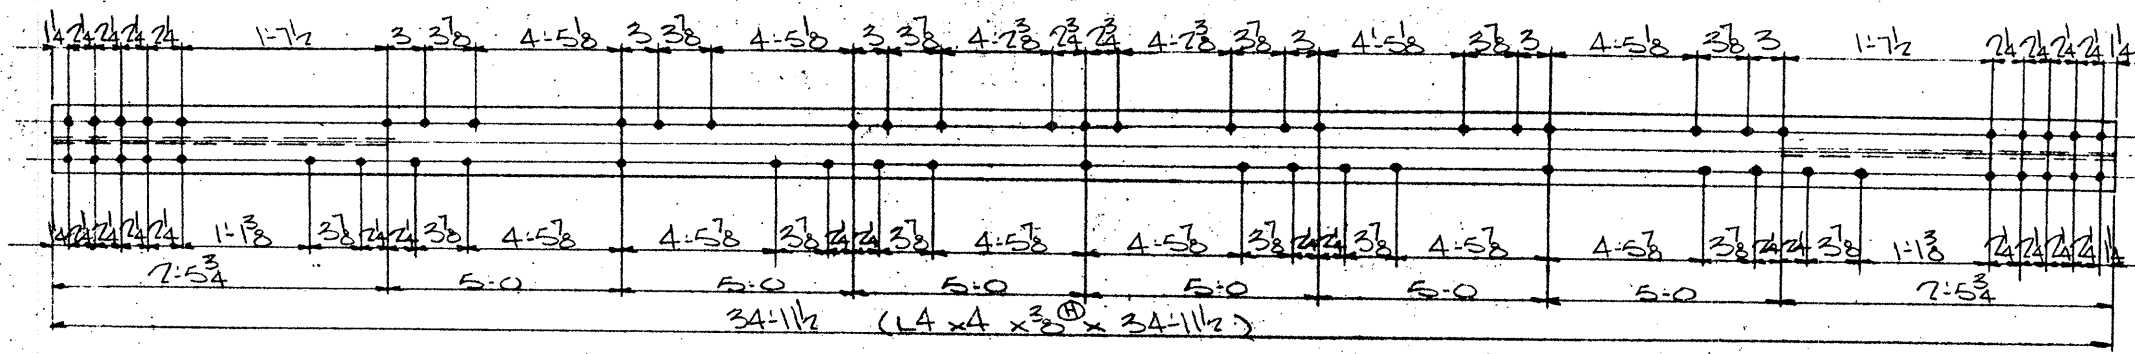 1¼ 2¼ 2¼ 2¼ 2¼ 1-7½ 3 3⅞ 4-5⅛ 3 3⅞ 4-5⅛ 3 3⅞ 4-2⅜ 2¾ 2¾ 4-2⅜ 3⅞ 3 4-5⅛ 3⅞ 3 4-5⅛ 3⅞ 3 1-7½ 2¼ 2¼ 2¼ 2¼ 1¼
1¼ 2¼ 2¼ 2¼ 2¼ 1-1⅜ 3⅞ 2¼ 2¼ 3⅞ 4-5⅞ 4-5⅞ 3⅞ 2¼ 2¼ 3⅞ 4-5⅞ 4-5⅞ 3⅞ 2¼ 2¼ 3⅞ 4-5⅞ 4-5⅞ 3⅞ 2¼ 2¼ 3⅞ 1-1⅜ 2¼ 2¼ 2¼ 2¼ 1¼
2-5¾ 5-0 5-0 5-0 5-0 5-0 5-0 2-5¾
34-11½ (L4 x4 x⅜ Ⓗ x 34-11½)